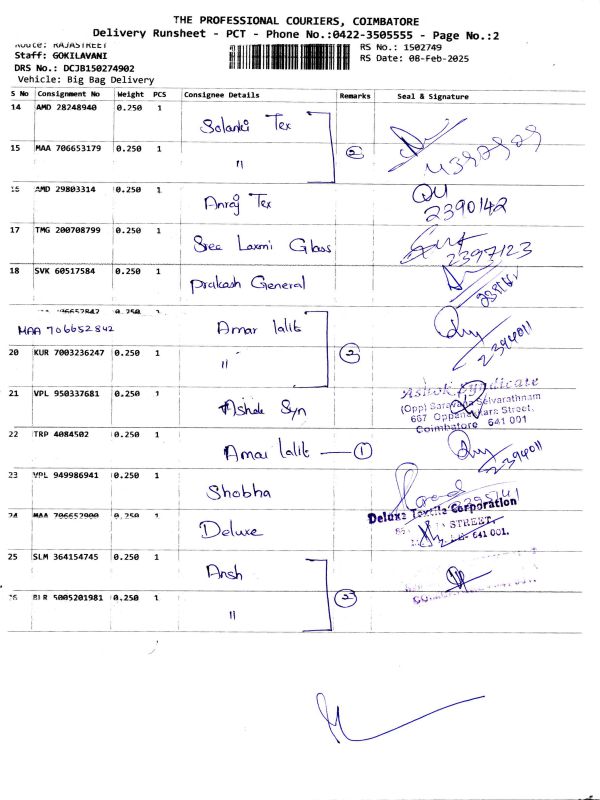 THE PROFESSIONAL COURIERS, COIMBATORE
Delivery Runsheet - PCT - Phone No.:0422-3505555 - Page No.:2
Route: RAJASTREET
Staff: GOKILAVANI
DRS No.: DCJB150274902
Vehicle: Big Bag Delivery
RS No.: 1502749
RS Date: 08-Feb-2025
S No Consignment No Weight PCS Consignee Details Remarks Seal & Signature
14 AMD 28248940 0.250 1 Solanki Tex
15 MAA 706653179 0.250 1 " 2
16 AMD 29803314 0.250 1 Anraj Tex 2390142
17 TMG 200708799 0.250 1 Sree Laxmi Glass 2397123
18 SVK 60517584 0.250 1 Prakash General
MAA 706652842 0.250 Amar lalit 2394011
20 KUR 7003236247 0.250 1 " 2
21 VPL 950337681 0.250 1 Ashok Syn
Ashok Syndicate
(Opp) Saravana Selvarathnam
667 Oppanakara Street,
Coimbatore 641 001
22 TRP 4084502 0.250 1 Amar lalit 1 2394011
23 VPL 949986941 0.250 1 Shobha
24 MAA 706652900 0.250 1 Deluxe
Deluxe Textile Corporation
STREET,
641 001.
25 SLM 364154745 0.250 1 Ansh
26 BLR 5005201981 0.250 1 " 2